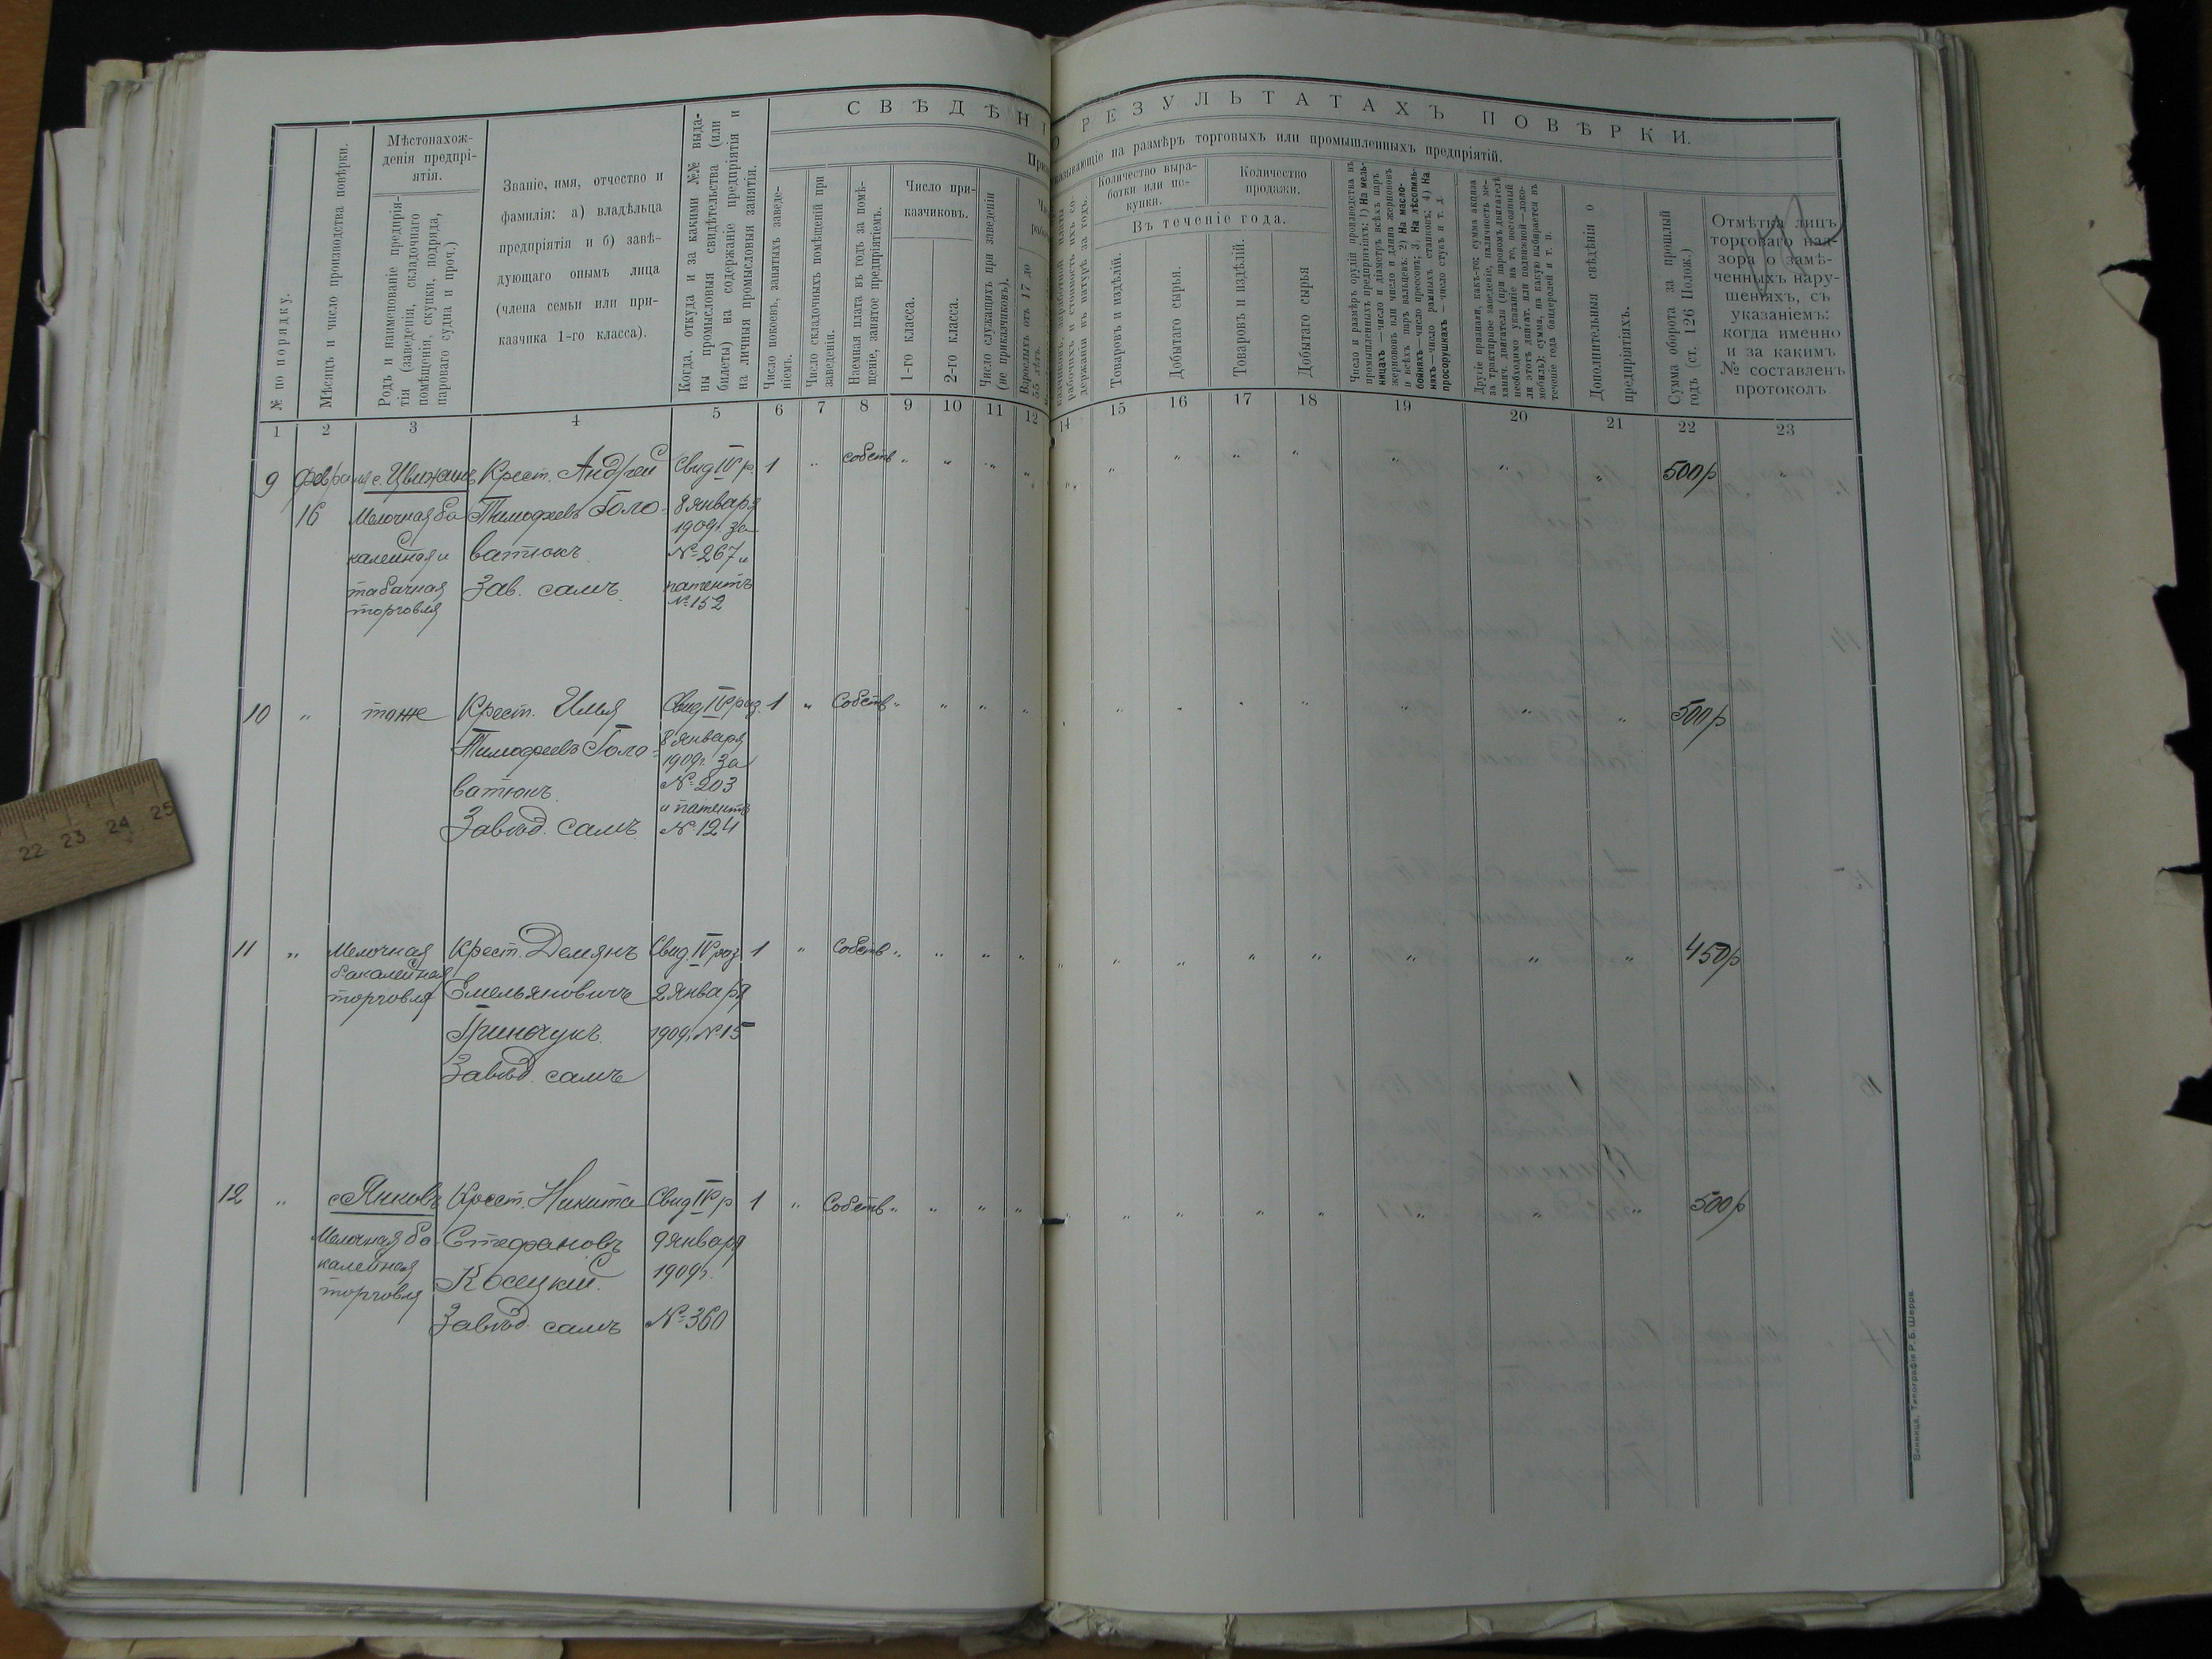 СВѢДѢНІ
О РЕЗУЛЬТАТАХЪ ПОВѢРКИ.
указывающіе на размѣръ торговыхъ или промышленныхъ предпріятій.
№ по порядку.
Мѣсяцъ и число производства повѣрки.
Мѣстонахож-
денія предпрі-
ятія.
Родъ и наименованіе предпрія-
тія (заведенія, складочнаго
помѣщенія, скупки, подряда,
пароваго судна и проч.)
Званіе, имя, отчество и
фамилія: а) владѣльца
предпріятія и б) завѣ-
дующаго онымъ лица
(члена семьи или при-
казчика 1-го класса).
Когда, откуда и за какими №№ выда-
ны промысловыя свидѣтельства (или
билеты) на содержаніе предпріятія и
на личныя промысловыя занятія.
Число покоевъ, занятыхъ заведе-
ніемъ.
Число складочныхъ помѣщеній при
заведеніи.
Наемная плата въ годъ за помѣ-
щеніе, занятое предпріятіемъ.
Число при-
казчиковъ.
1-го класса.
2-го класса.
Число служащихъ при заведеніи
(не приказчиковъ).
Взрослыхъ отъ 17 до
55 лѣтъ.
рабочихъ и стоимость ихъ со-
держанія въ натурѣ за годъ.
Количество выра-
ботки или по-
купки.
Количество
продажи.
Въ теченіе года.
Товаровъ и издѣлій.
Добытаго сырья.
Товаровъ и издѣлій.
Добытаго сырья
Число и размѣръ орудій производства въ
промышленныхъ предпріятіяхъ: 1) На мель-
ницахъ—число и діаметръ всѣхъ паръ
жернововъ или число и длина жернововъ
и всѣхъ паръ вальцевъ; 2) На масло-
бойняхъ—число прессовъ; 3) На лѣсопиль-
няхъ—число рамныхъ станковъ; 4) На
просорушкахъ—число ступъ и т. д.
Другіе признаки, какъ-то: сумма акциза
за трактирное заведеніе, наличность ме-
ханич. двигателя (при паровомъ двигателѣ
необходимо указаніе на то, постоянный
ли этотъ двигат. или подвижной—локо-
мобиль); сумма, на какую выбирается въ
теченіе года бандеролей и т. п.
Дополнительныя свѣдѣнія о
предпріятіяхъ.
Сумма оборота за прошлый
годъ (ст. 126 Полож.)
Отмѣтка лицъ
торговаго над-
зора о замѣ-
ченныхъ нару-
шеніяхъ, съ
указаніемъ:
когда именно
и за какимъ
№ составленъ
протоколъ.
1 2 3 4 5 6 7 8 9 10 11 12 14 15 16 17 18 19 20 21 22 23
9 Февраля с. Цвижинъ Крест. Андрей Свид IV р. 1 " собств " " " " " " " " " " " 500р "
16 Мелочная ба Тимофеевъ Голо- 8 января
1909г. за
калейная и ватюкъ № 267 и
табачная Зав. самъ патентъ
торговля № 152
10 " тоже Крест. Илья Свид IV раз. 1 " Собств " " " " " " " " " " " 500р
Тимофеевъ Голо- 8 января
1909г. за
ватюкъ № 203
и патентъ
Завѣд. самъ № 124
11 " Мелочная Крест. Демянъ Свид. IV раз 1 " Собств " " " " " " " " " " " 450р
бакалейная
торговля Емельяновичъ 2 января
Гринчукъ 1909г. № 15
Завѣд. самъ
12 " с Янковъ Крест. Никита Свид IV р 1 " Собств " " " " " " " " " " " 500р
Мелочная ба Стефановъ 9 января
калейная Косецкій. 1909г.
торговля
Завѣд. самъ № 360
22 23 24 25
Винница, Типографія Р. Б. Шерра